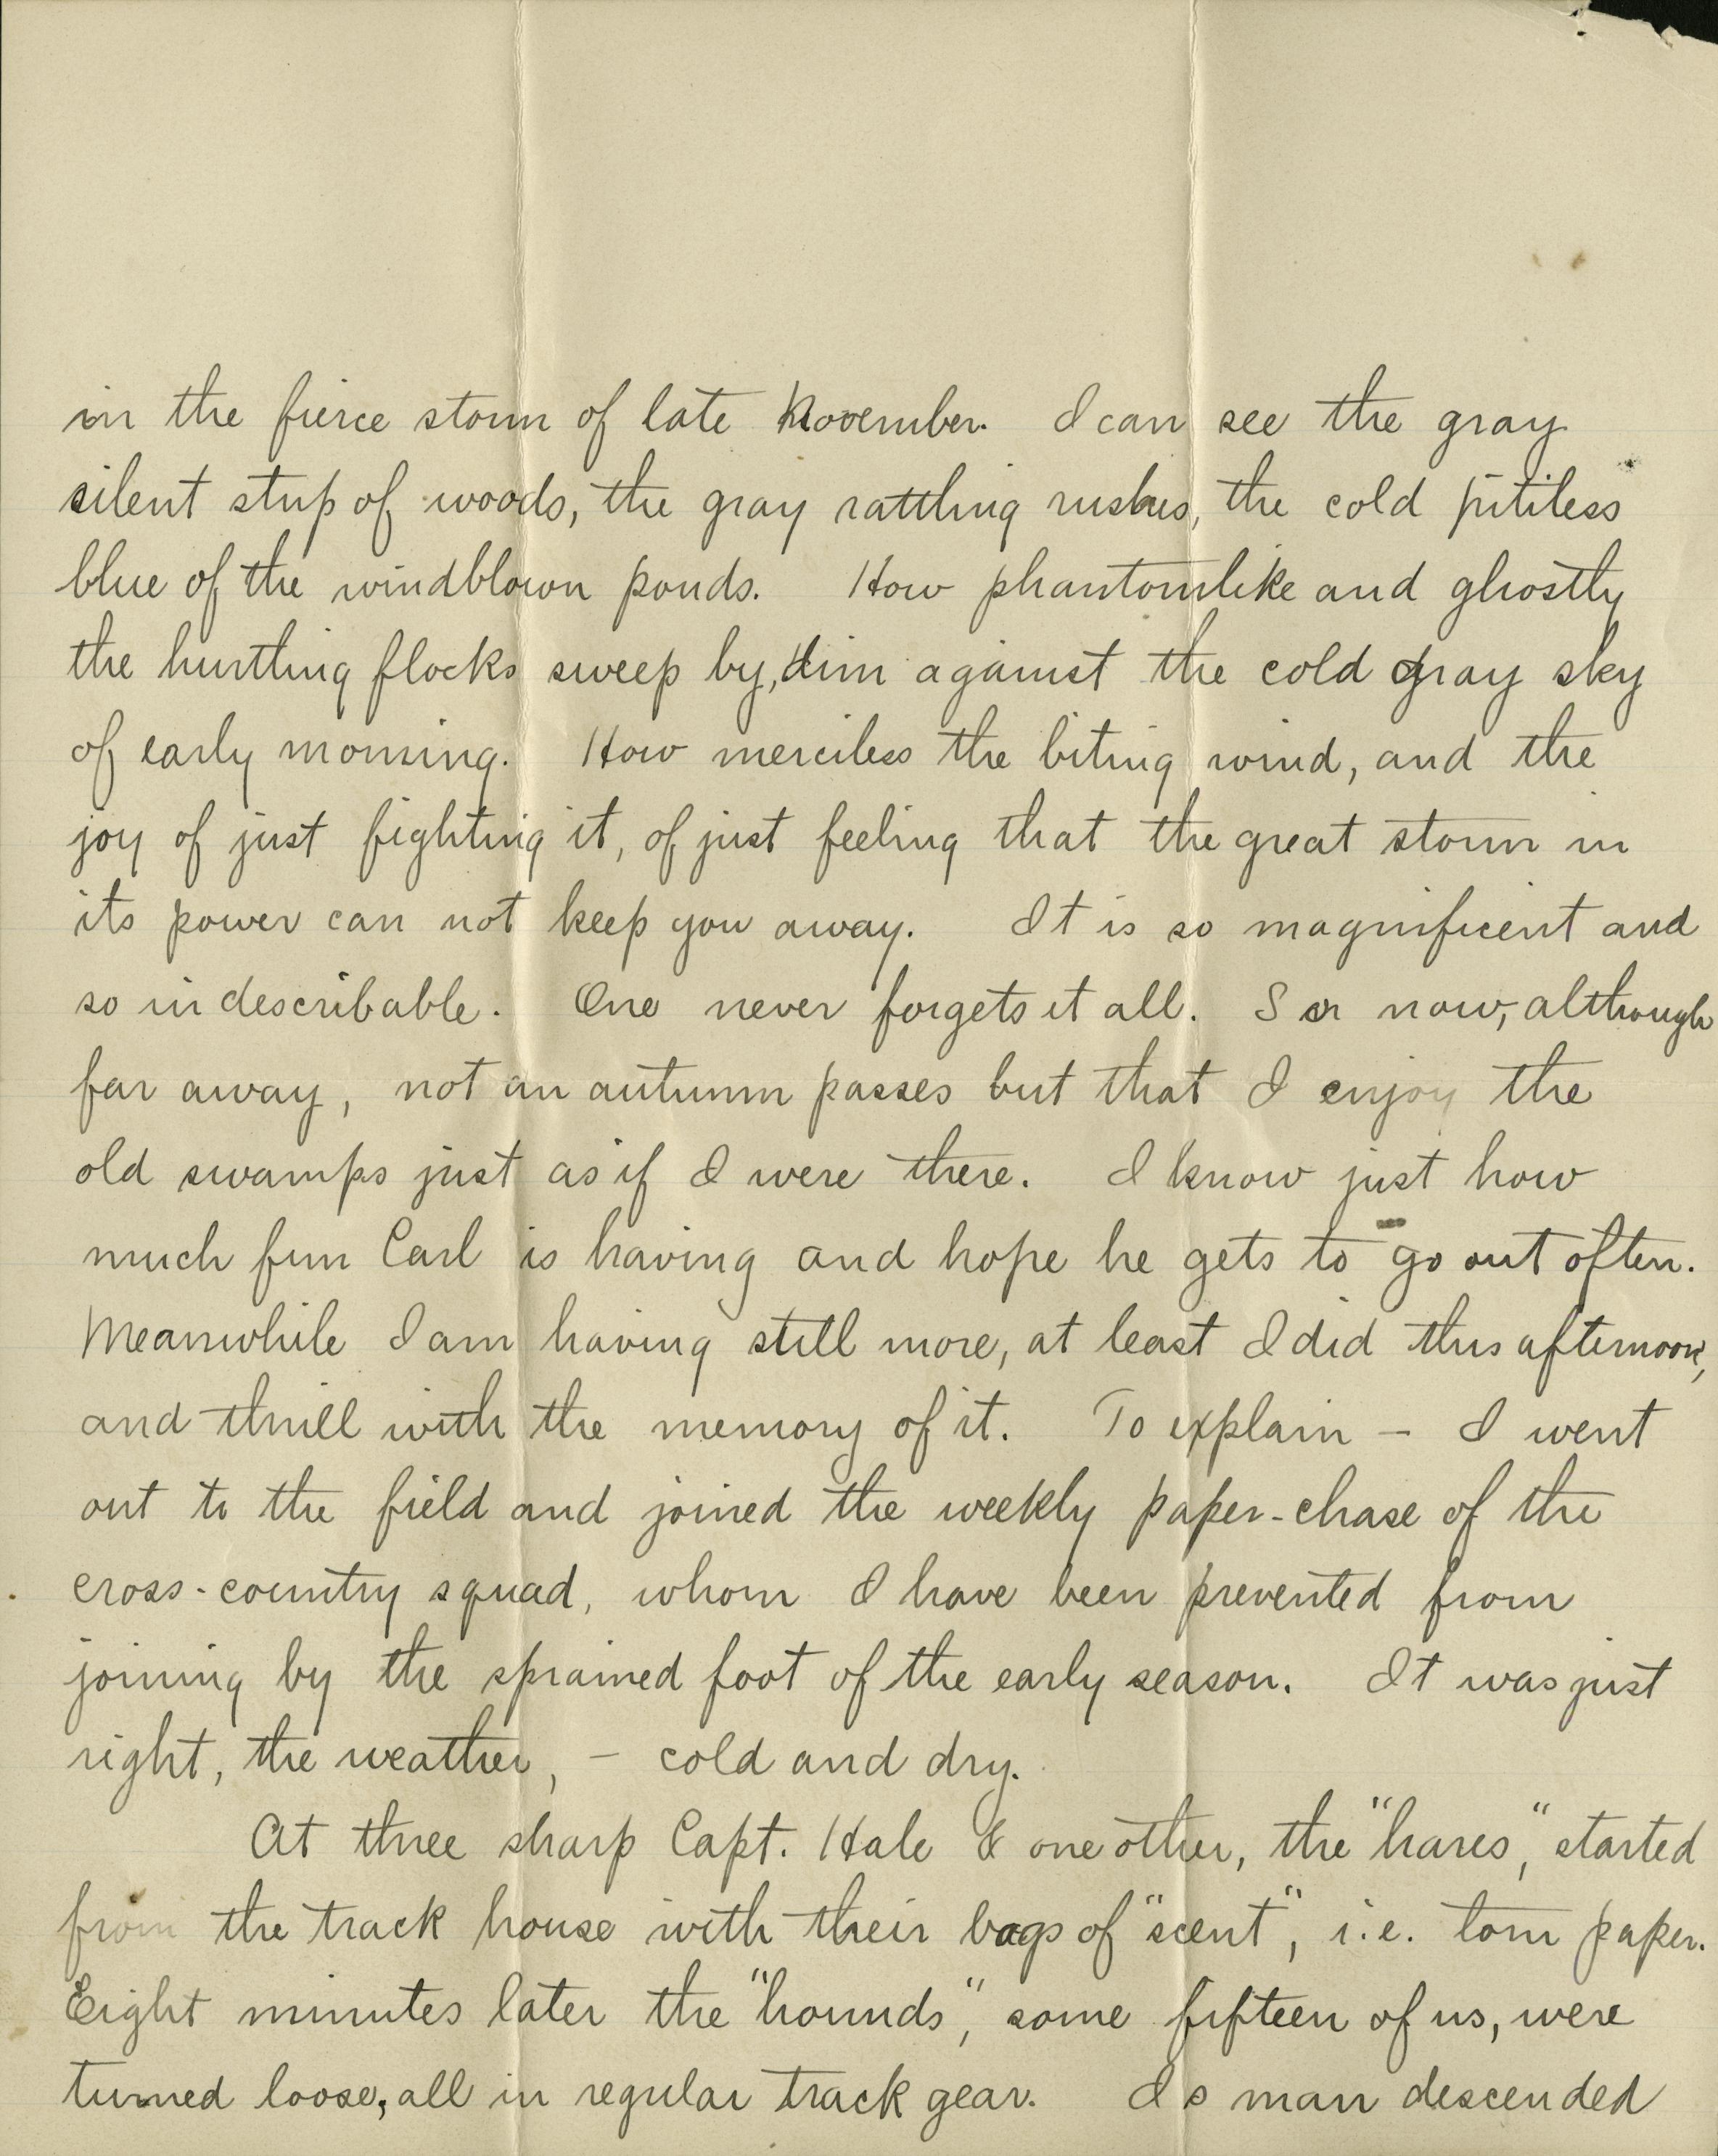 in the fierce storm of late November. I can see the gray
silent strip of woods, the gray rattling rushes, the cold pitiless
blue of the windblown ponds. How phantomlike and ghostly
the hurtling flocks sweep by, dim against the cold gray sky
of early morning. How merciless the biting wind, and the
joy of just fighting it, of just feeling that the great storm in
its power can not keep you away. It is so magnificent and
so indescribable. One never forgets it all. So now, although
far away, not an autumn passes but that I enjoy the
old swamps just as if I were there. I know just how
much fun Carl is having and hope he gets to go out often.
Meanwhile I am having still more, at least I did this afternoon,
and thrill with the memory of it. To explain – I went
out to the field and joined the weekly paper-chase of the
cross-country squad, whom I have been prevented from
joining by the sprained foot of the early season. It was just
right, the weather, – cold and dry.
At three sharp Capt. Hale & one other, the "hares," started
from the track house with their bags of "scent", i.e. torn paper.
Eight minutes later the "hounds," some fifteen of us, were
turned loose, all in regular track gear. Is man descended